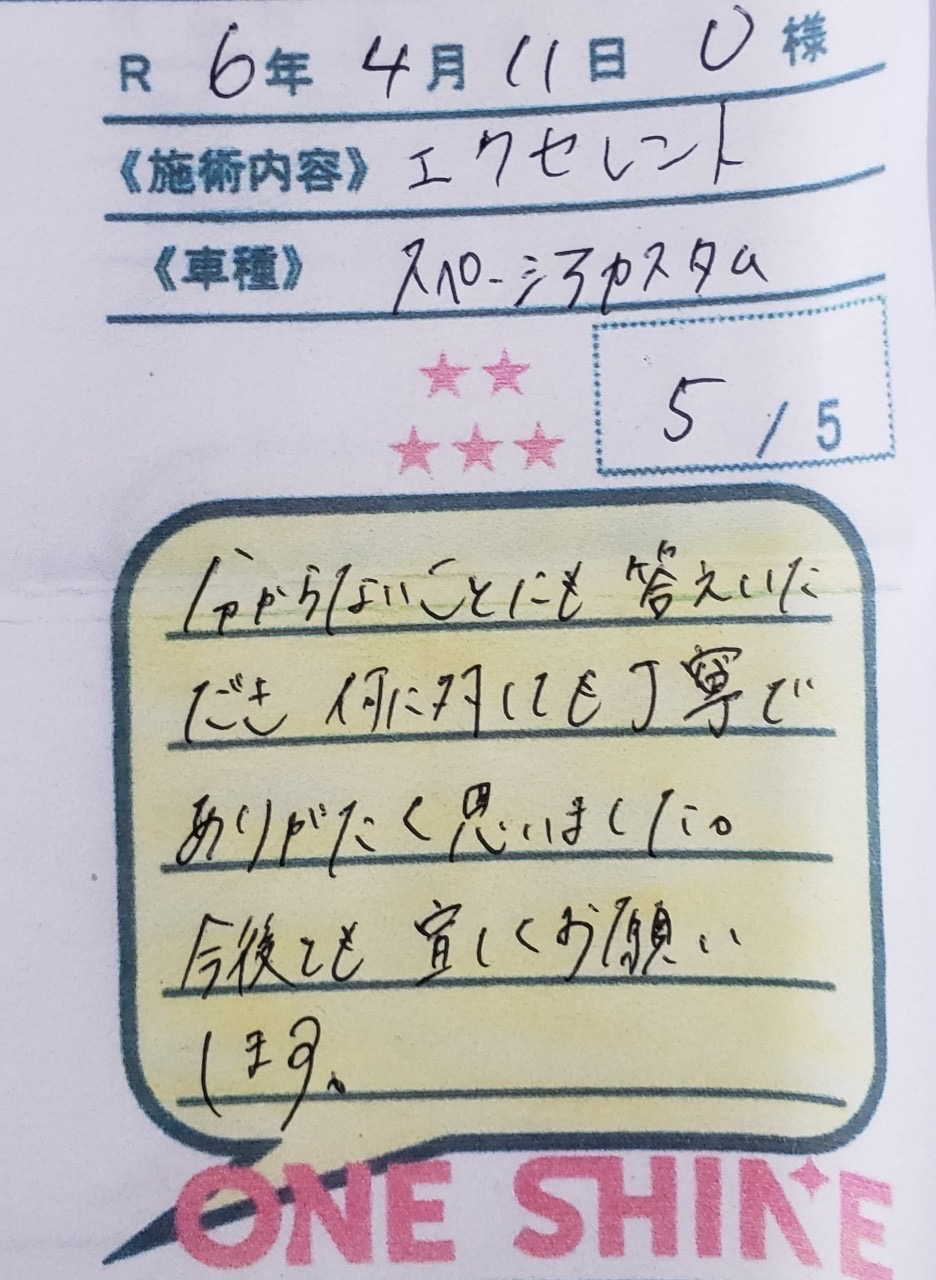 R 6年 4月 11日 U 様
《施術内容》 エクセレント
《車種》 スペーシアカスタム
★★
★★★
5 / 5
分からないことにも 答えいた
だき 何に対しても丁寧で
ありがたく思いました。
今後とも 宜しくお願い
します。
ONE SHINE